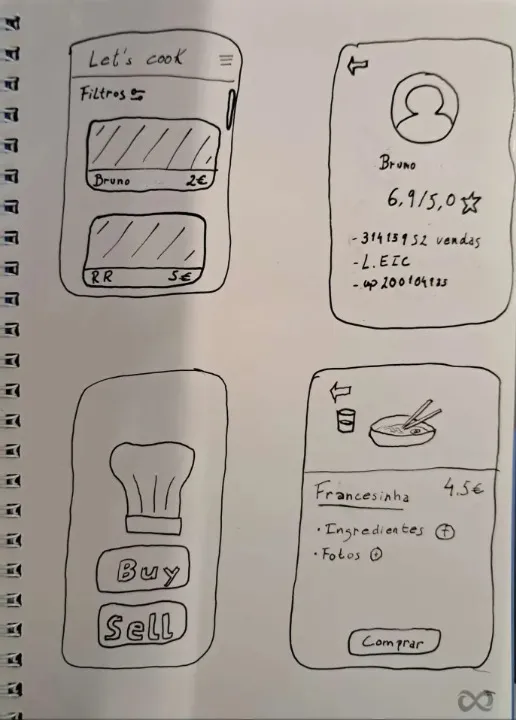 Let's cook
Filtros
Bruno 2€
RR 5€
Bruno
6,9/5,0
- 31413952 vendas
- L.EIC
Buy
Sell
Francesinha 4.5€
• Ingredientes +
• Fotos +
Comprar